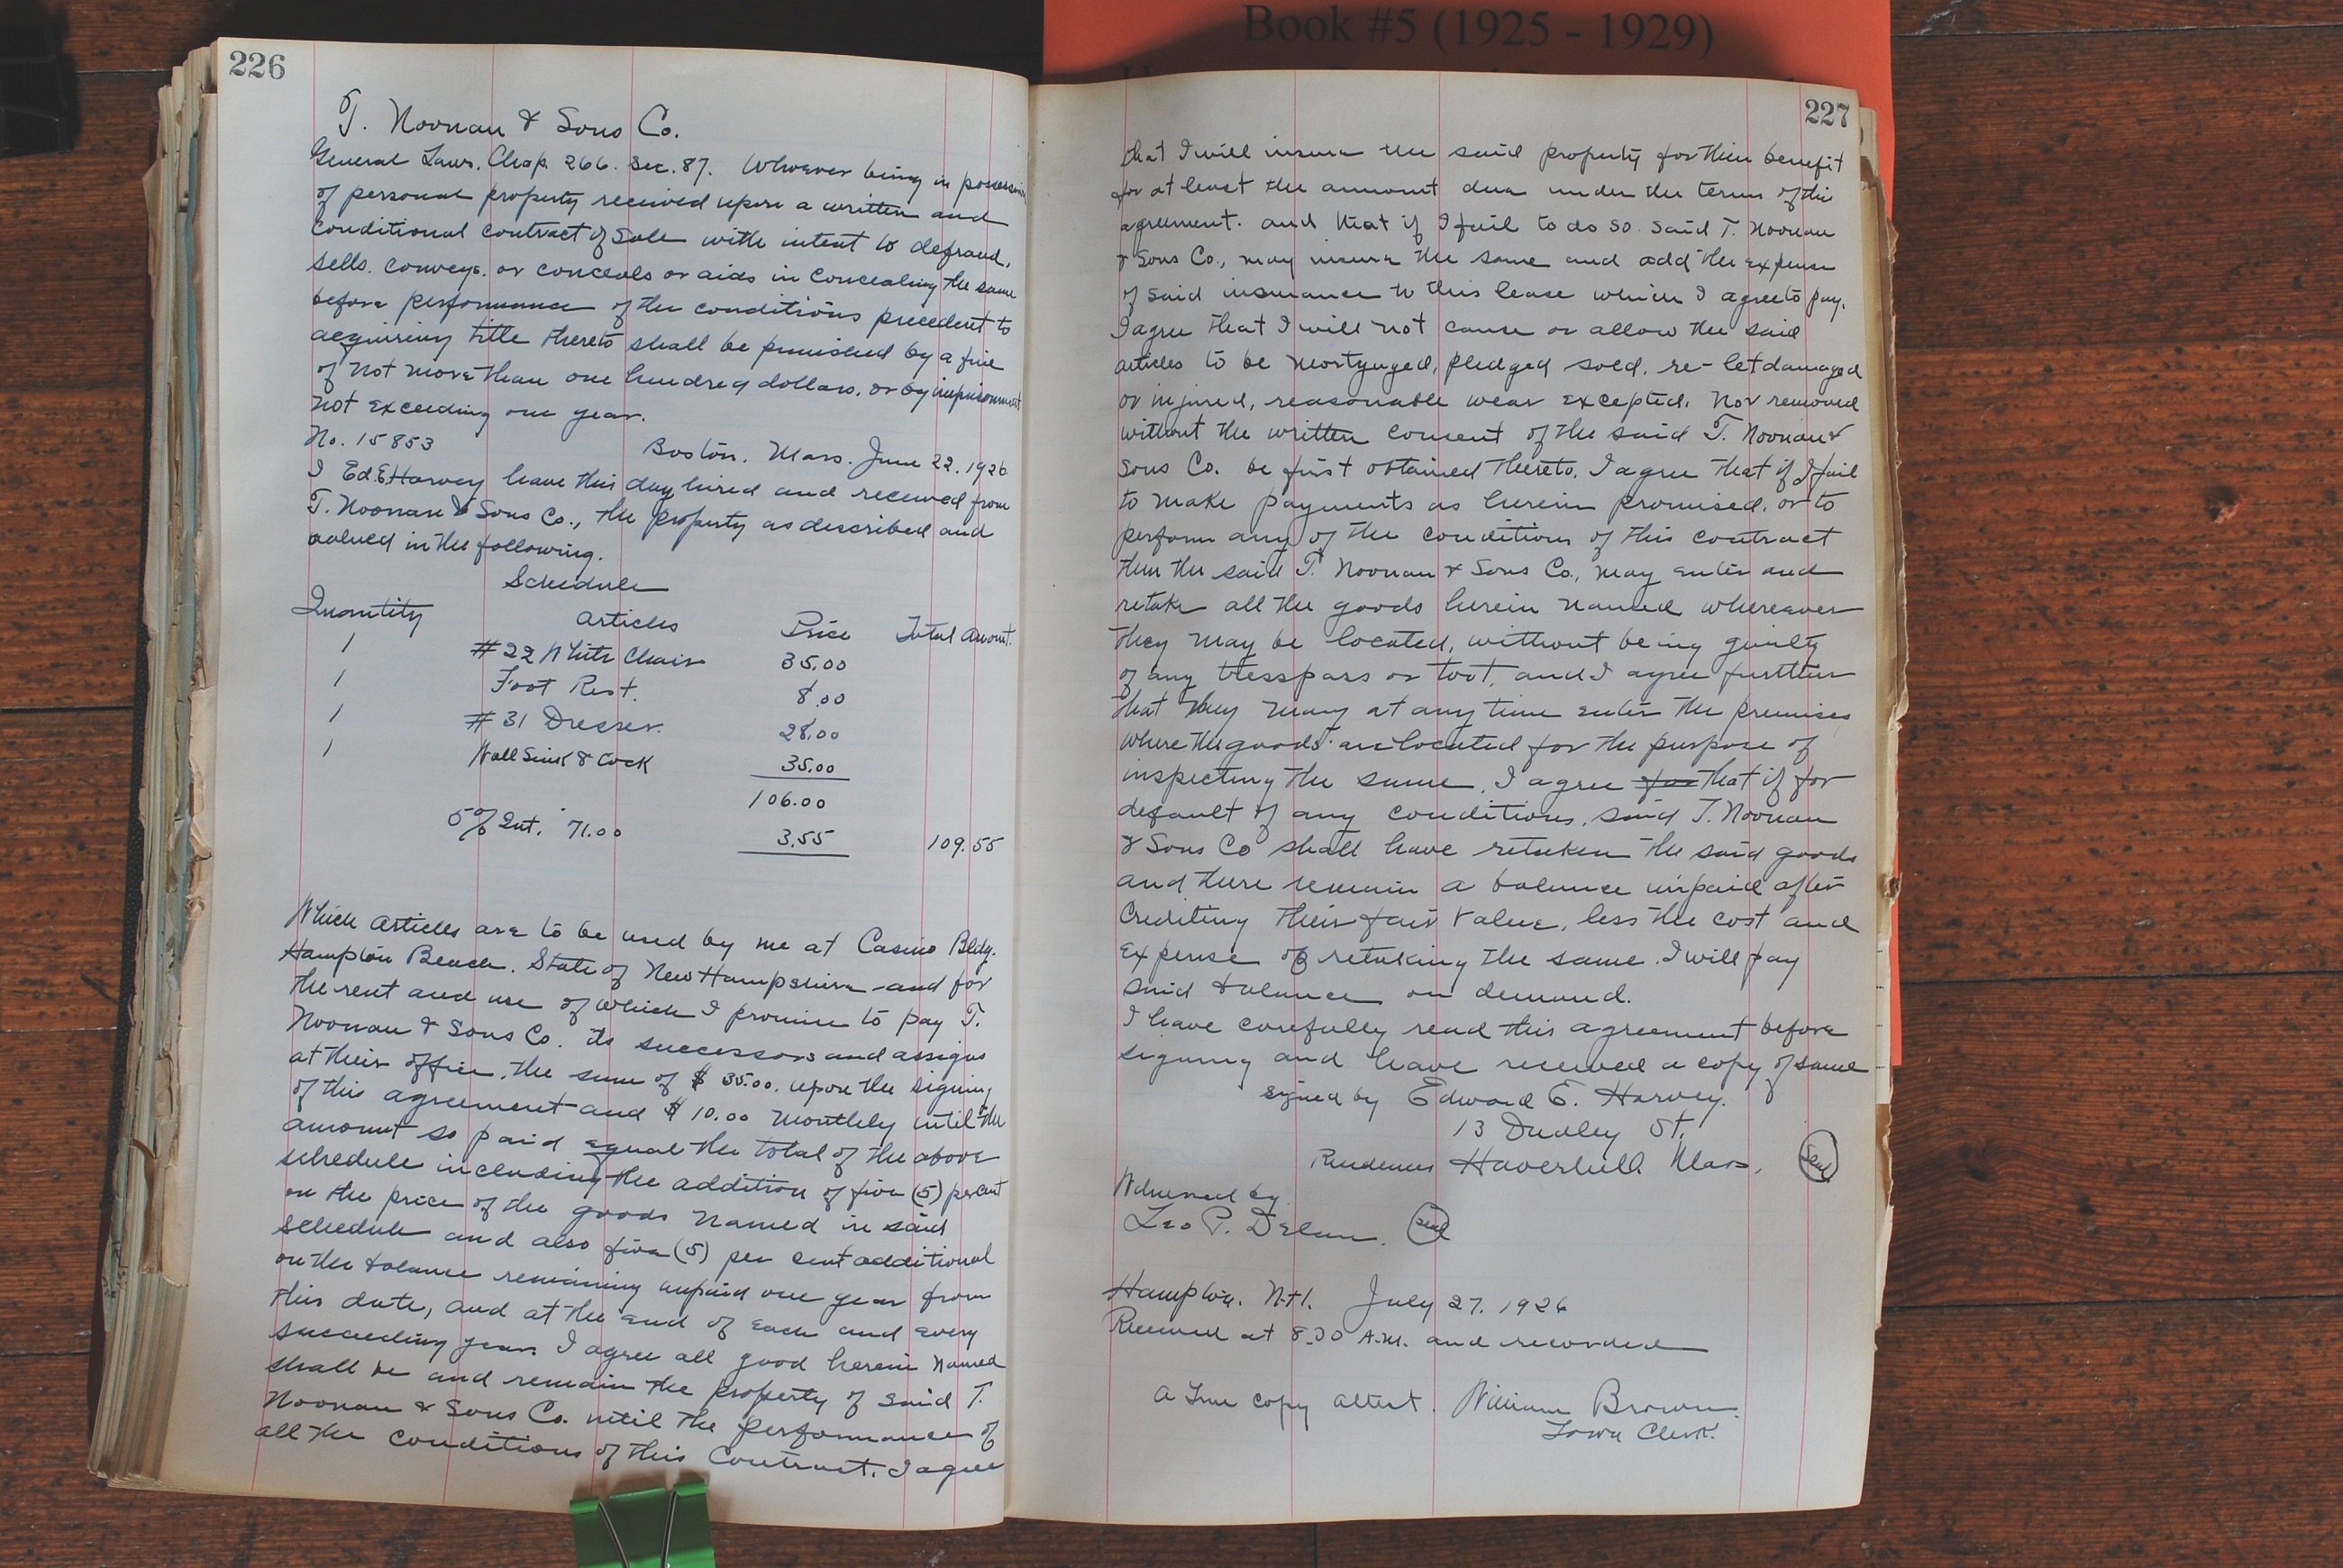 Book #5 (1925 - 1929)
226
T. Noonan & Sons Co.
General Laws. Chap. 266. Sec. 87. Whoever being in possession
of personal property received upon a written and
conditional contract of sale with intent to defraud,
sells. conveys. or conceals or aids in concealing the same
before performance of the conditions precedent to
acquiring title thereto shall be punished by a fine
of not more than one hundred dollars. or by imprisonment
not exceeding one year.
No. 15853 Boston. Mass. June 22. 1926
I Ed. E Harvey have this day hired and received from
T. Noonan & Sons Co., the property as described and
valued in the following.
Schedule
Quantity Articles Price Total Amount.
1 #22 White Chair 35.00
1 Foot Rest. 8.00
1 #31 Dresser. 28.00
1 Wall Sink & Cock 35.00
106.00
5% Int. 71.00 3.55 109.55
Which articles are to be used by me at Casino Bldg.
Hampton Beach. State of New Hampshire and for
the rent and use of which I promise to pay T.
Noonan & Sons Co. its successors and assigns
at their office. the sum of $ 35.00. upon the signing
of this agreement and $ 10.00 monthly until the
amount so paid equal the total of the above
schedule including the addition of five (5) percent
on the price of the goods named in said
schedule and also five (5) per cent additional
on the balance remaining unpaid one year from
this date, and at the end of each and every
succeeding year. I agree all good herein named
shall be and remain the property of said T.
Noonan & Sons Co. until the performance of
all the conditions of this Contract. I agree
227
that I will insure the said property for their benefit
for at least the amount due under the terms of this
agreement. and that if I fail to do so. said T. Noonan
& Sons Co., may insure the same and add the expense
of said insurance to this lease which I agree to pay.
I agree that I will not cause or allow the said
articles to be mortgaged, pledged sold, re-let damaged
or injured, reasonable wear excepted. Nor removed
without the written consent of the said T. Noonan &
Sons Co. be first obtained thereto. I agree that if I fail
to make payments as herein promised, or to
perform any of the conditions of this contract
then the said T. Noonan & Sons Co., may enter and
retake all the goods herein named wherever
they may be located, without being guilty
of any tresspass or tort, and I agree further
that they may at any time enter the premises
where the goods are located for the purpose of
inspecting the same. I agree for that if for
default of any conditions, said T. Noonan
& Sons Co shall have retaken the said goods
and there remain a balance unpaid after
Crediting their fair value, less the cost and
expense of retaking the same. I will pay
said balance on demand.
I have carefully read this agreement before
signing and have received a copy of same
signed by Edward E. Harvey.
13 Dudley St.
Residence Haverhill Mass. Seal
Witnessed by
Leo P. Seal
Hampton. N.H. July 27. 1926
Received at 8.30 A.M. and recorded
A True copy attest. William Brown.
Town Clerk.